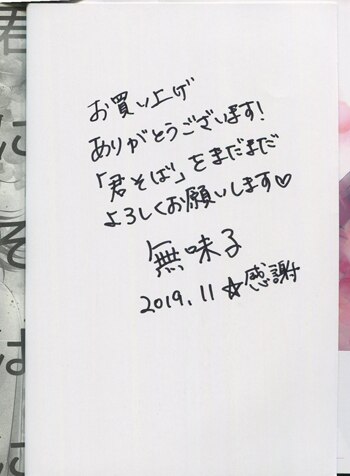 お買い上げ
ありがとうございます!
「君そば」をまだまだ
よろしくお願いします♡
無味子
2019.11☆感謝
君にそばに